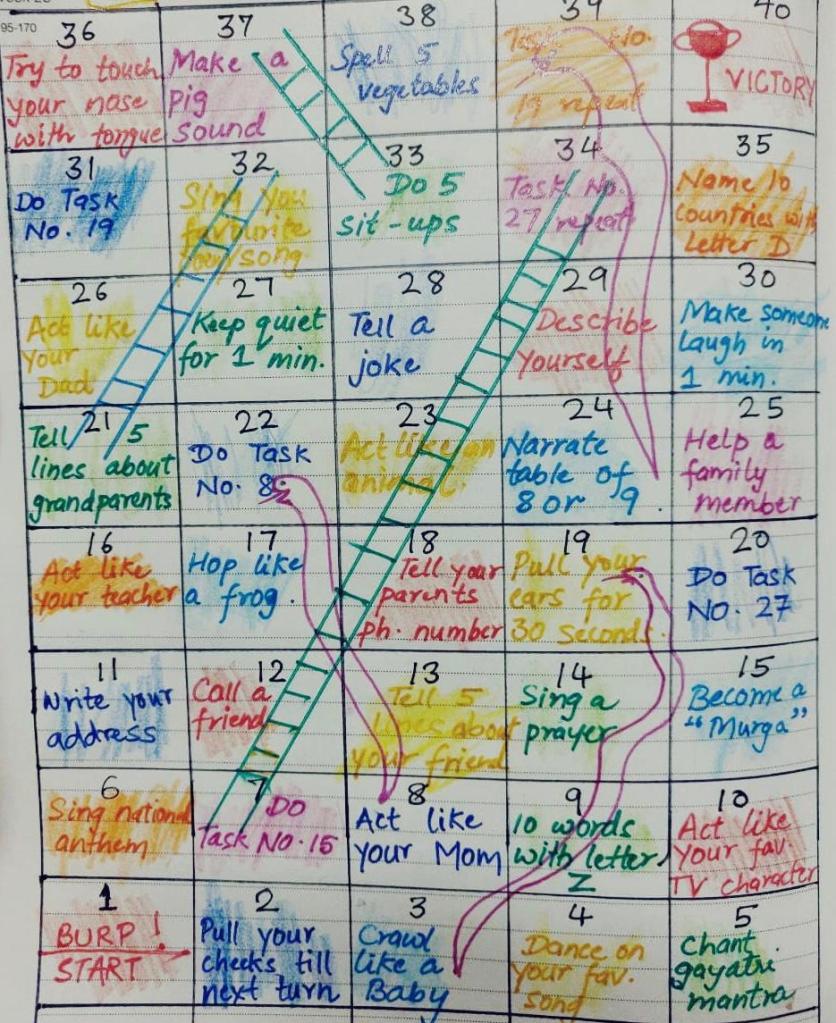 95-170
36
Try to touch
your nose
with tongue
37
Make a
pig
sound
38
Spell 5
vegetables
39
Task No.
19 repeat
40
VICTORY
31
Do Task
No. 19
32
Sing you
favourite
song
33
Do 5
sit-ups
34
Task No.
27 repeat
35
Name 10
countries with
letter D
26
Act like
your
Dad
27
Keep quiet
for 1 min.
28
Tell a
joke
29
Describe
yourself
30
Make someone
laugh in
1 min.
21
Tell 5
lines about
grandparents
22
Do Task
No. 8
23
Act like an
animal.
24
Narrate
table of
8 or 9.
25
Help a
family
member
16
Act like
your teacher
17
Hop like
a frog.
18
Tell your
parents
ph. number
19
Pull your
ears for
30 seconds.
20
Do Task
NO. 27
11
Write your
address
12
Call a
friend
13
Tell 5
lines about
your friend
14
Sing a
prayer
15
Become a
"Murga"
6
Sing national
anthem
7
Do
Task NO. 15
8
Act like
your Mom
9
10 words
with letter
Z
10
Act like
your fav.
TV character
1
BURP!
START
2
Pull your
cheeks till
next turn
3
Crawl
like a
Baby
4
Dance on
your fav.
song
5
Chant
gayatri
mantra